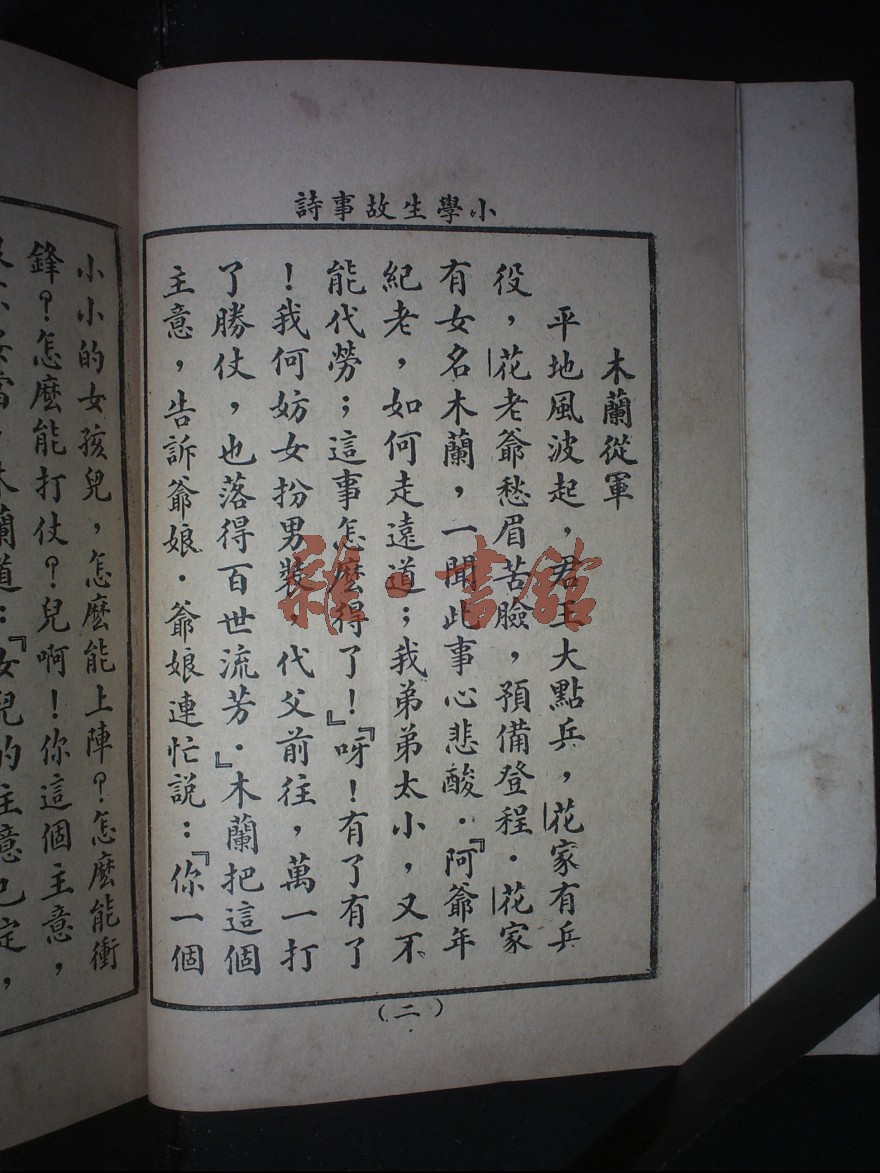 小學生故事詩
木蘭從軍
平地風波起，君王大點兵，花家有兵
役，花老爺愁眉苦臉，預備登程．花家
有女名木蘭，一聞此事心悲酸．『阿爺年
紀老，如何走遠道；我弟弟太小，又不
能代勞；這事怎麼得了！』『呀！有了有了
！我何妨女扮男裝，代父前往，萬一打
了勝仗，也落得百世流芳．』木蘭把這個
主意，告訴爺娘．爺娘連忙說：『你一個
（二）
小小的女孩兒，怎麼能上陣？怎麼能衝
鋒？怎麼能打仗？兒啊！你這個主意，
木蘭道：『女兒的主意已定，
雜·書館